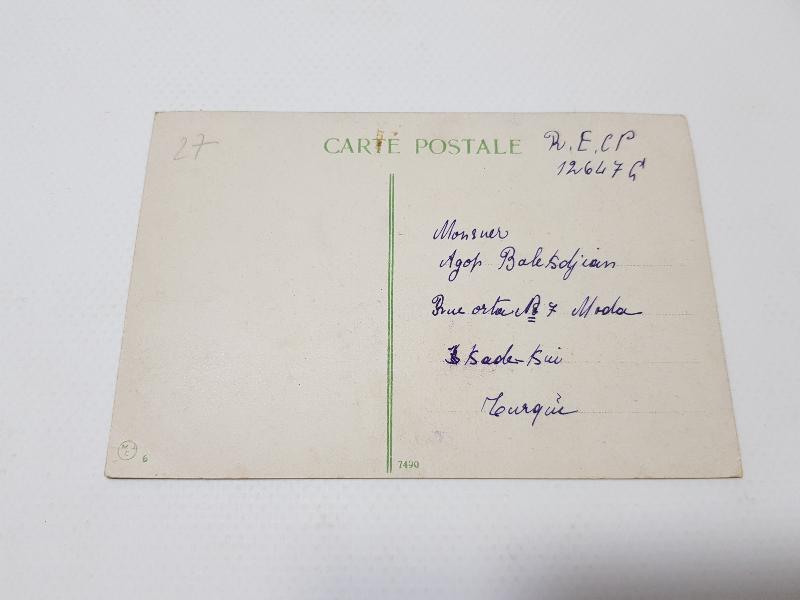 27
CARTE POSTALE
R.E.CP
12647 G
Monsuer
Agop Balekdjian
Rue orta № 7 Moda
Kade-Kui
Turquie
6
7490